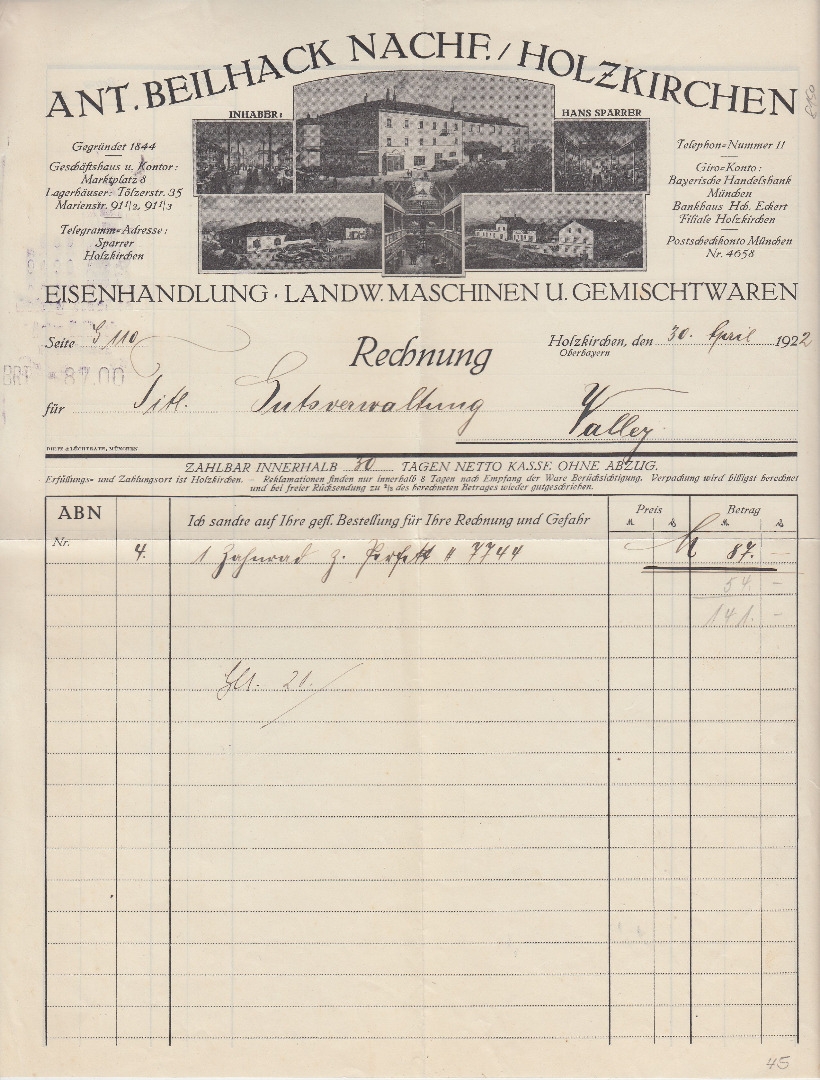 ANT. BEILHACK NACHF. / HOLZKIRCHEN
INHABER: HANS SPARRER
Gegründet 1844
Geschäftshaus u. Kontor:
Marktplatz 8
Lagerhäuser: Tölzerstr. 35
Marienstr. 91 1/2, 91 1/3
Telegramm=Adresse:
Sparrer
Holzkirchen
Telephon=Nummer 11
Giro=Konto:
Bayerische Handelsbank
München
Bankhaus Hch. Eckert
Filiale Holzkirchen
Postscheckkonto München
Nr. 4658
EISENHANDLUNG · LANDW. MASCHINEN U. GEMISCHTWAREN
Seite 110
Holzkirchen, den 30. April 1922
Oberbayern
Rechnung
BRT *87.00
für Titl. Gutsverwaltung Valley
DIETZ & LÜCHTRATH, MÜNCHEN
ZAHLBAR INNERHALB 30 TAGEN NETTO KASSE OHNE ABZUG.
Erfüllungs- und Zahlungsort ist Holzkirchen. – Reklamationen finden nur innerhalb 8 Tagen nach Empfang der Ware Berücksichtigung. Verpackung wird billigst berechnet
und bei freier Rücksendung zu 2/3 des berechneten Betrages wieder gutgeschrieben.
ABN Ich sandte auf Ihre gefl. Bestellung für Ihre Rechnung und Gefahr Preis Betrag
Nr. 4. 1 Zahnrad z. Perfekt " 7744 M 87. –
54. –
141. –
21.
45